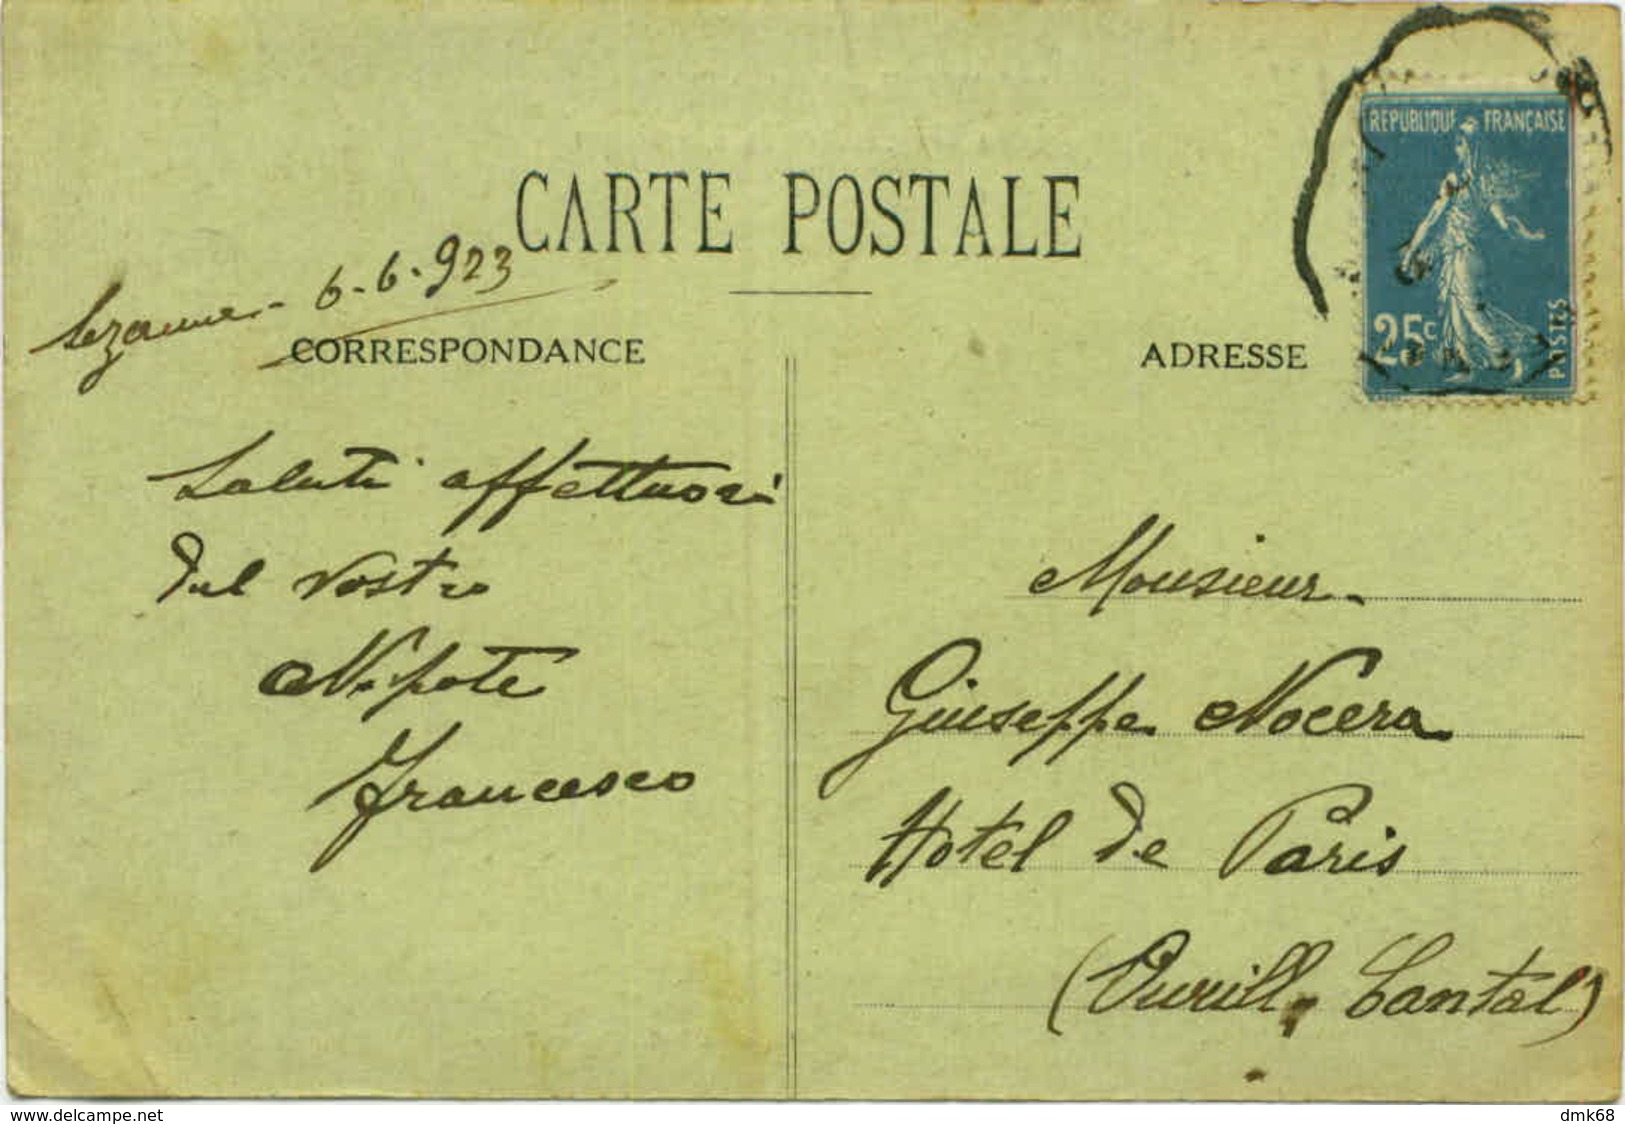 CARTE POSTALE
Sezanne - 6-6-923
CORRESPONDANCE
ADRESSE
REPUBLIQUE FRANÇAISE
25c
POSTES
Saluti affettuosi
dal vostro
Nipote
Francesco
Monsieur
Giuseppe Nocera
Hotel de Paris
Cantal)
www.delcampe.net
dmk68